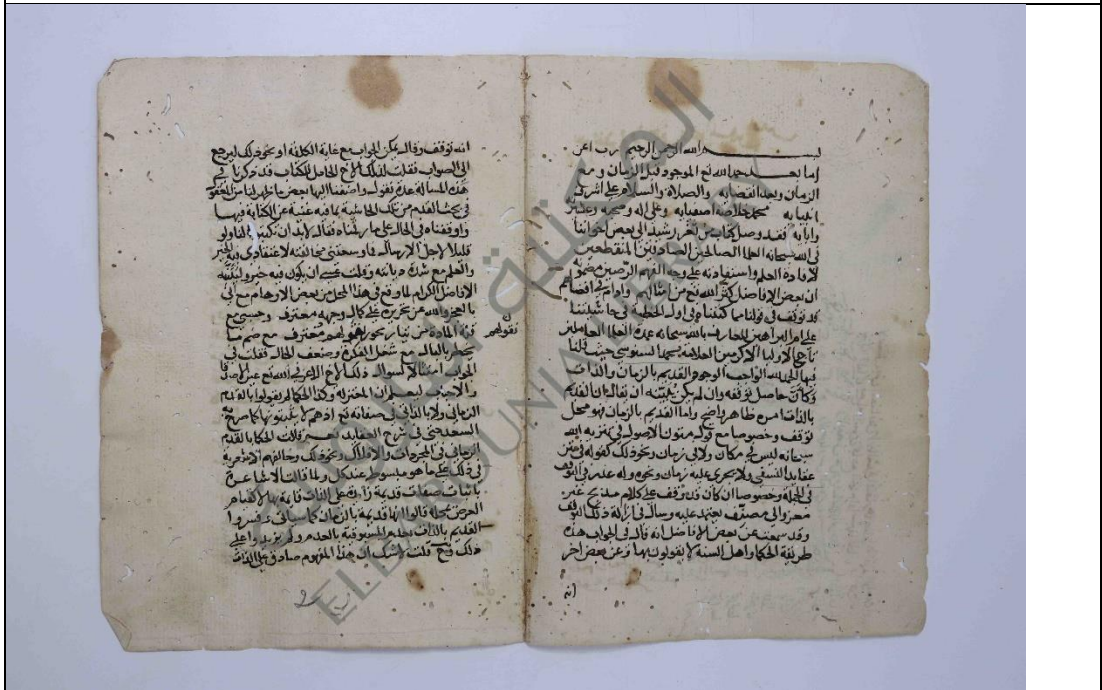 بسم الله الرحمن الرحيم رب اعن
اما بعد حمد الله تع الموجود قبل الزمان ومع
الزمان وبعد انقضايه والصلاة والسلام على اشرف
انبيايه محمد خلاصة اصفيايه وعلى اله وصحبه وعترته
فقد وصل كتاب من ثغر رشيد الى بعض اخواننا
في الله سبحانه العلما الصالحين الصادقين المنقطعين
لافادة العلم واستفادته على وجه الفهم الرصين مضمونه
ان بعض الافاضل كثر الله تع من امثالهم وادام افضالهم
قد توقف في قولنا مما كتبناه في اول الخطبة في حاشيتنا
على ام البراهين للعارف بالله سبحانه عمدة العلما العاملين
تاج الاوليا الاكرمين العلامة السنوسي حيث قلنا
فيها الحمد لله الواجب الوجود القديم بالزمان والذات
وكان حاصل توقفه وان لم يكن بعينه ان يقال ان القديم
بالذات امره ظاهر واضح واما القديم بالزمان فهو محل
توقف وخصوصا مع قول متون الاصول في تنزيه الله
سبحانه ليس في مكان ولا في زمان ونحو ذلك كقوله في متن
عقايد النسفي ولا يجري عليه زمان ونحوه وله عذر في التوقف
في الجملة وخصوصا ان كان قد توقف على كلام غير
معزو الى مصنف يعتمد عليه وسال في ازالة ذلك التوقف
وقد سمعت عن بعض الافاضل انه قال في الجواب هذه
طريقة الحكما واهل السنة لا يقولون بها وعن بعض اخر
انه
انه توقف وقال يمكن الجواب مع غاية الكلفة او نحو ذلك ليرجع
الى الصواب فقلت لذلك الاخ الحامل للكتاب قد ذكرنا في
هذه المسالة عدة نقول واضفنا اليها بعض ما ظهر لنا من
في بحث القدم من تلك الحاشية بما فيه غنية عن الكتابة فيها
واوقفناه في الحال على ما رشناه فقال لا بد ان تكتبن لنا ولو
قليلا لاجل الارسال فما وسعتني مخالفته لاعتقادي فيه الخير
والعلم مع شدة ديانته وقلت عسى ان يكون فيه خير
الافاضل الكرام لما وقع في هذا المحل من بعض الاوهام مع اني
بالعجز والله عن تحريره على كمال وجهه معترف وحسبي مع
قلة المادة من تيار بحور نقولهم مغترف مع ضم ما
يخطر بالبال مع شغل الفكرة وضعف الحال فقلت في
الجواب امتثالا لسوال ذلك الاخ
ليعلم ان المعتزلة وكذا الحكما لم يقولوا بالقدم
الزماني ولا بالذاتي في صفاته تع اذ هم لا يثبتونها كما صرح به
السعد حتى في شرح العقايد نعم قالت الحكما بالقدم
الزماني في المجردات والافلاك ونحو ذلك وخالفهم الاشعرية
في ذلك على ما هو مبسوط عند كل ولما قالت الاشاعرة
باثبات صفات قديمة زايدة على الذات قايمة بها لا كقيام
العرض بمحله قالوا انها قديمة بالزمان كما سياتي وفسروا
القديم بالذات بعدم المسبوقية بالعدم ولم يزيدوا على
ذلك وح قلت لا شك ان هذا المفهوم صادق على الذات
نقولهم
المكتبة
ELBAROUNIA LIBRARY